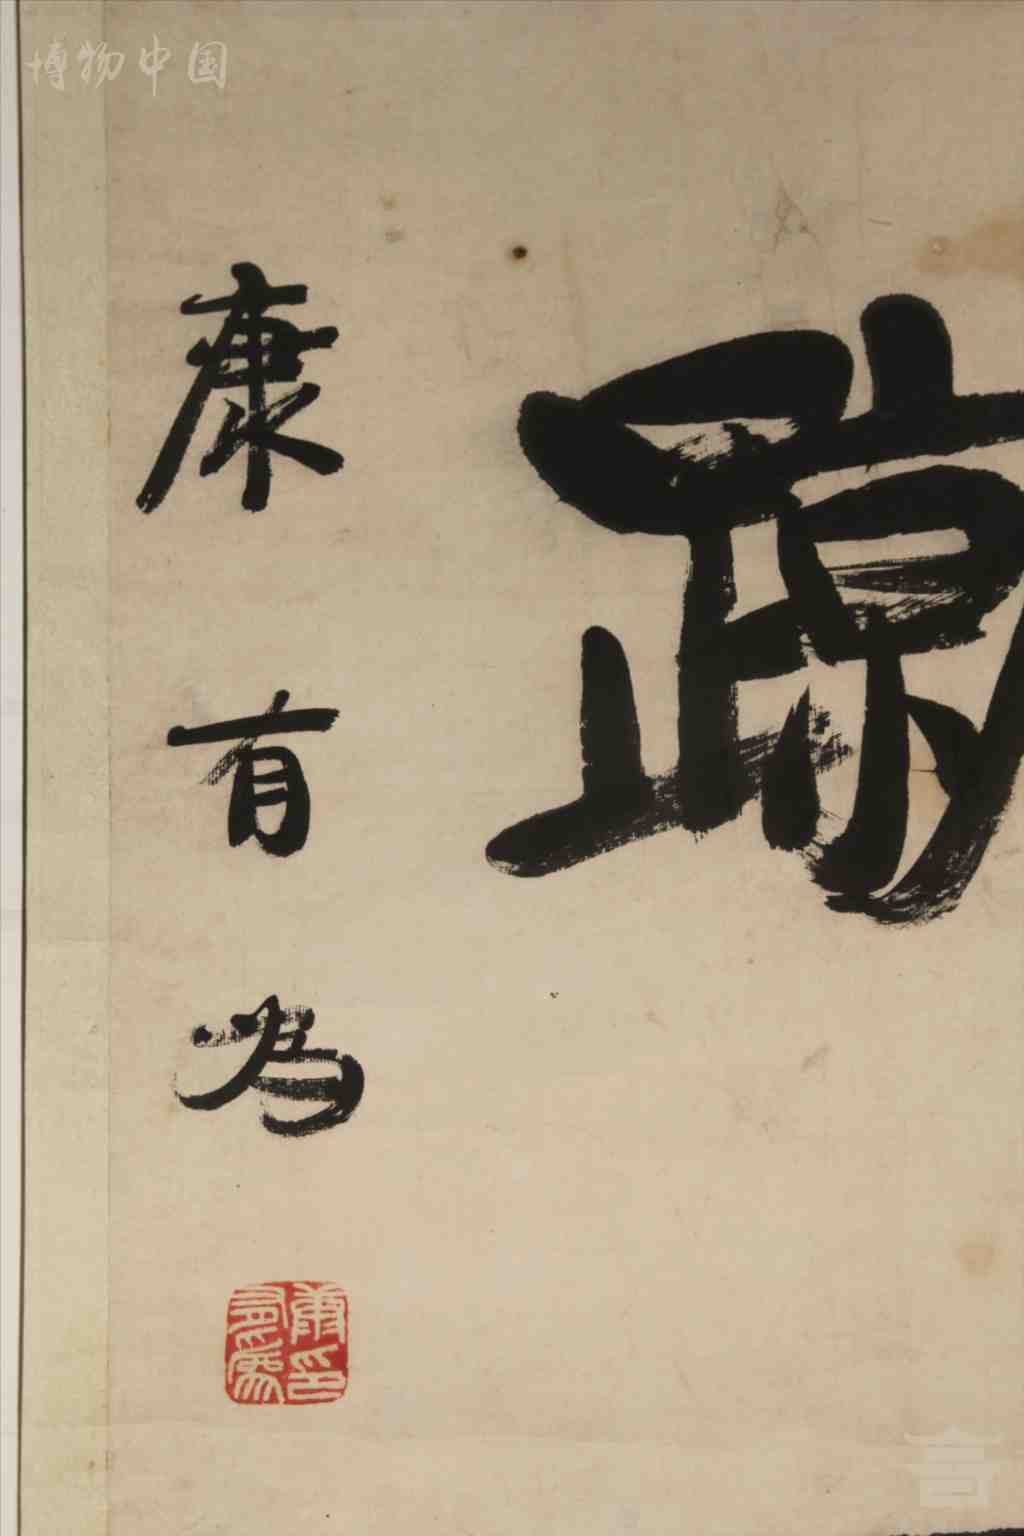 博物中国
康有为
康有为印